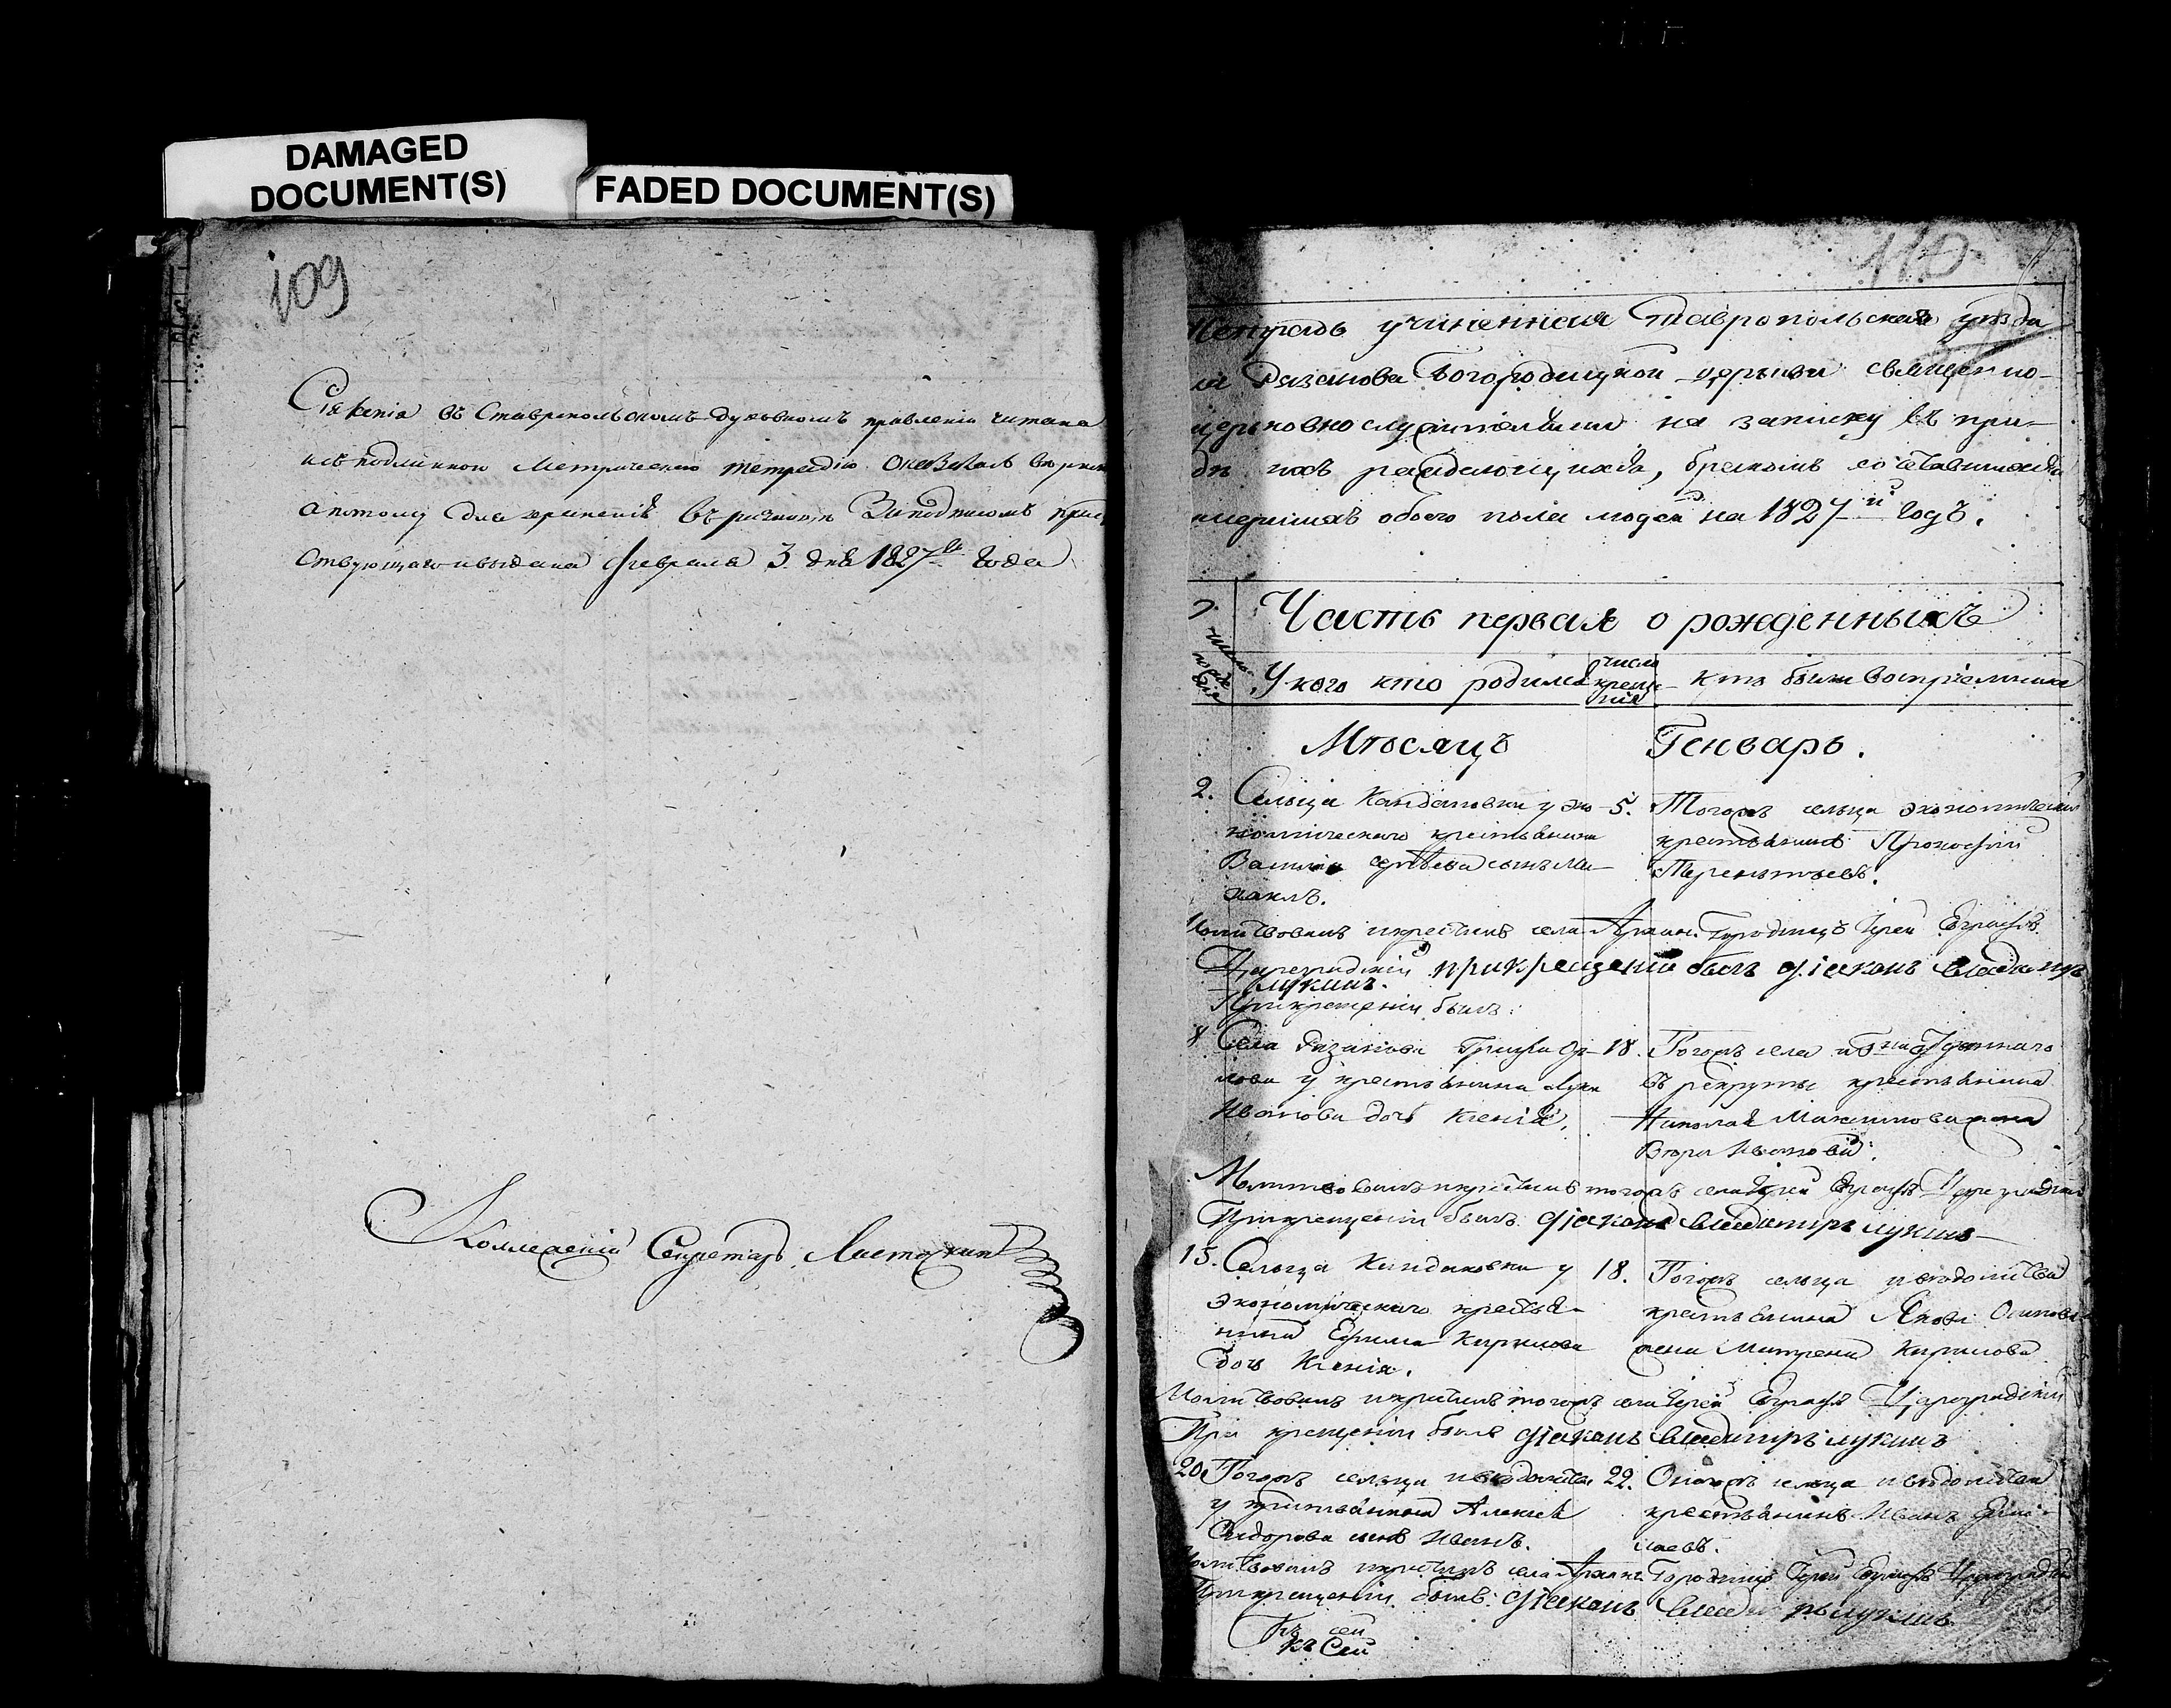 DAMAGED
DOCUMENT(S)
FADED DOCUMENT(S)
109
Сія копія въ Ставропольскомъ духовномъ правленіи читана
и съ подлинною Метрическою тетрадью оказалась верною
а потому для хранения въ ризницу За подписомъ прису
тствующаго и выдана февраля 3 дня 1827го Года
Коллежскій Секретарь Ласточкин
110
Тетрадь учиненная Ставропольской уезда
ла Рязанова Богородицкой церкви священно-
церковнослужителями на записку въ при-
де ихъ раждающихся, бракомъ сочетавшихся
умершихъ обоего пола людей на 1827й годъ.
Часть первая о рожденныхъ
У кого кто родился
число
креще-
нія
кто были восприемники
Мѣсяцъ Генварь.
2. Сельца Кандаковки у эко-
номическаго крестьянина
Василія сынъ Ми-
хаилъ.
5. Тогожъ сельца экономический
крестьянинъ Прокофий
Терентьевъ.
Молитвовалъ и крестилъ села Городищъ Іерей Евграфъ
Цареградскій при крещеніи былъ діаконъ Владимиръ
лукинъ.
При крещеніи былъ:
8 Села Рязанова
у крестьянина Луки
Иванова дочь Ксенія.
18. Тогожъ села
въ рекруты крестьянина
Николая Максимова жена
Ивановa.
Молитвовалъ и крестилъ тогожъ села Іерей Евграфъ Цареградский
При крещеніи былъ діаконъ Владимиръ лукинъ
15. Сельца Кандаковки у
экономическаго крестья-
нина Ефима Кирилова
дочь Ксенія.
18. Тогожъ сельца и ведомства
крестьянина Якова Осипова
жена Матрена Кирилова
Молитвовалъ и крестилъ тогожъ села Іерей Евграфъ Цареградскій
При крещеніи былъ діаконъ Владимиръ лукинъ
20. Тогожъ сельца и ведомства
у крестьянина Алексея
Сидорова сынъ Иванъ.
22. Оногожъ сельца и ведомства
крестьянинъ Иванъ Ермо-
лаевъ.
Молитвовалъ и крестилъ села Городищъ Іерей Евграфъ Цареградский
При крещеніи былъ: діаконъ Владимиръ лукинъ
Къ сей
Къ Сей